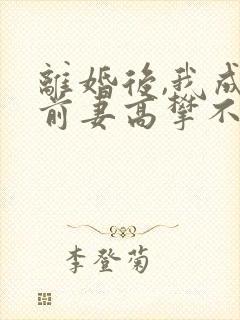 離婚後,我成
前妻高攀不
李登菊